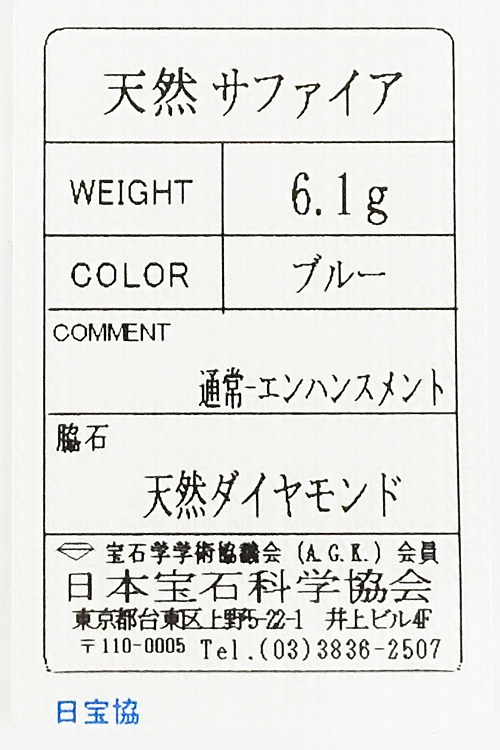 天然 サファイア
WEIGHT 6.1g
COLOR ブルー
COMMENT
通常-エンハンスメント
脇石
天然ダイヤモンド
宝石学学術協議会 (A.G.K.) 会員
日本宝石科学協会
東京都台東区上野5-22-1 井上ビル4F
〒110-0005 Tel.(03)3836-2507
日宝協